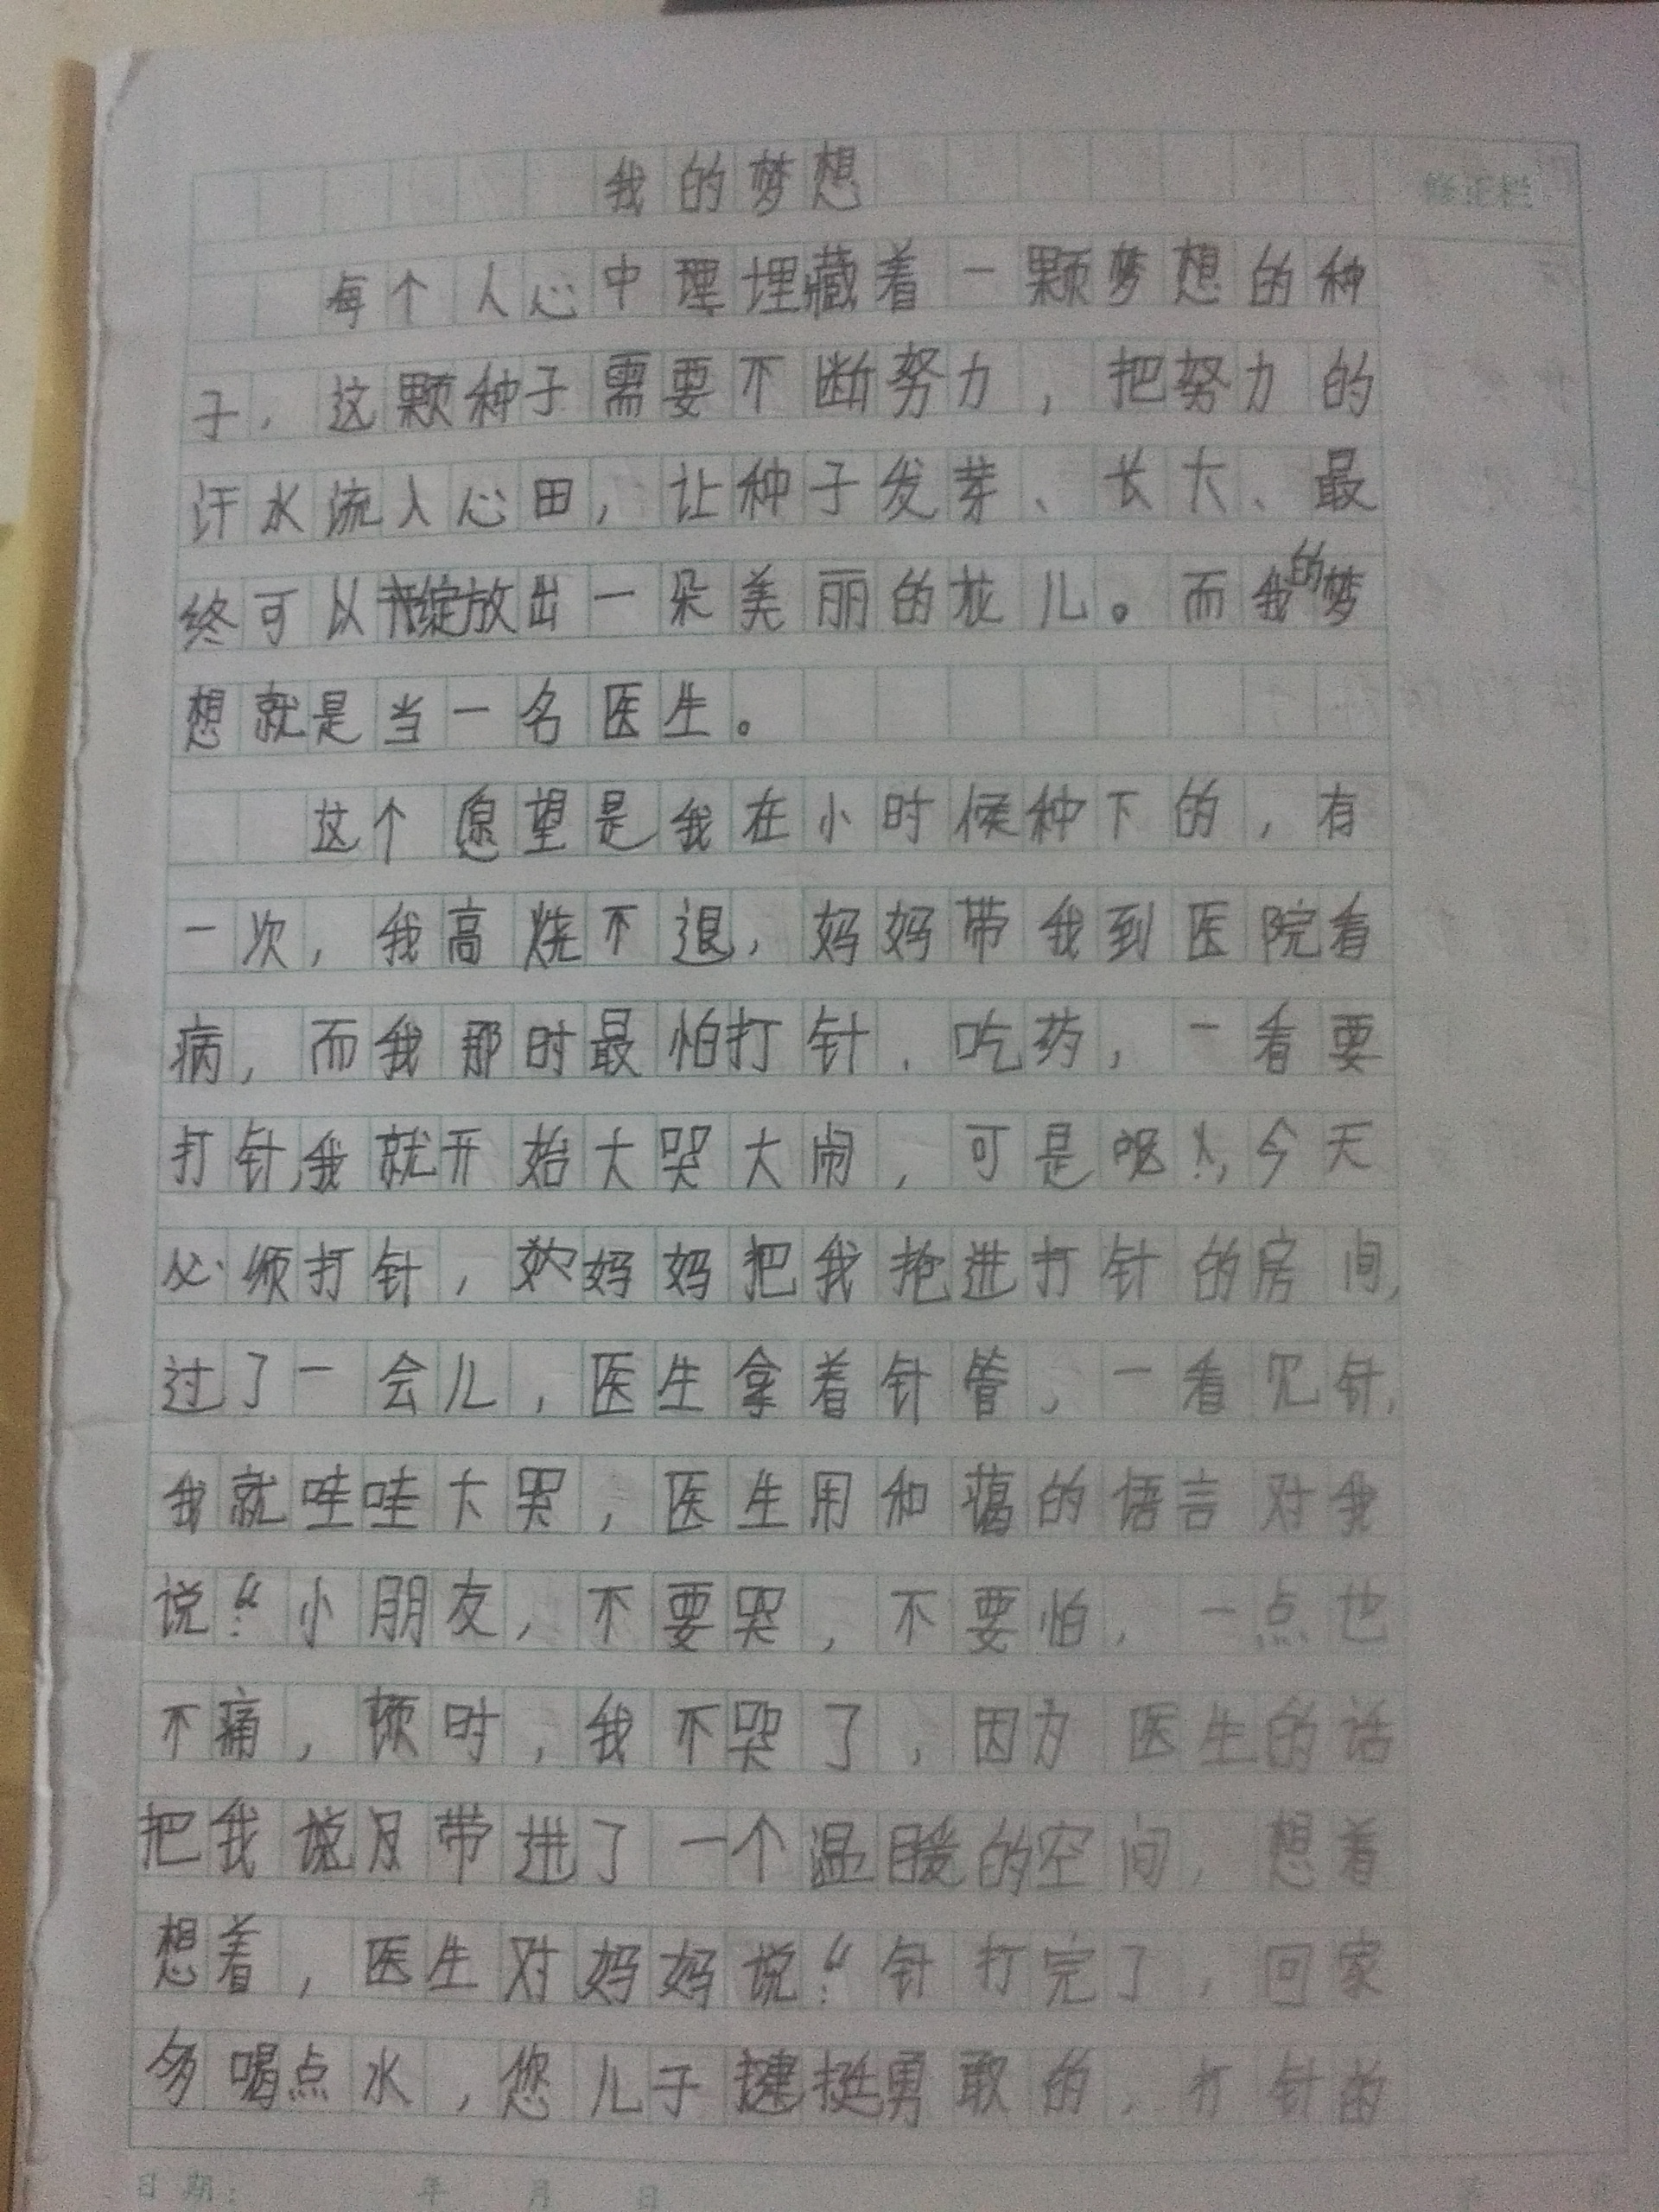 我的梦想
修正栏
每个人心中埋埋藏着一颗梦想的种
子，这颗种子需要不断努力，把努力的
汗水流入心田，让种子发芽、长大、最
终可以绽放出一朵美丽的花儿。而我的梦
想就是当一名医生。
这个愿望是我在小时候种下的，有
一次，我高烧不退，妈妈带我到医院看
病，而我那时最怕打针、吃药，一看要
打针，我就开始大哭大闹，可是呢，今天
必须打针，妈妈把我抱进打针的房间，
过了一会儿，医生拿着针管，一看见针，
我就哇哇大哭，医生用和蔼的语言对我
说：“小朋友，不要哭，不要怕，一点也
不痛，顿时，我不哭了，因为医生的话
把我带进了一个温暖的空间，想着
想着，医生对妈妈说：“针打完了，回家
多喝点水，您儿子挺勇敢的，打针的
日期： 年 月 日